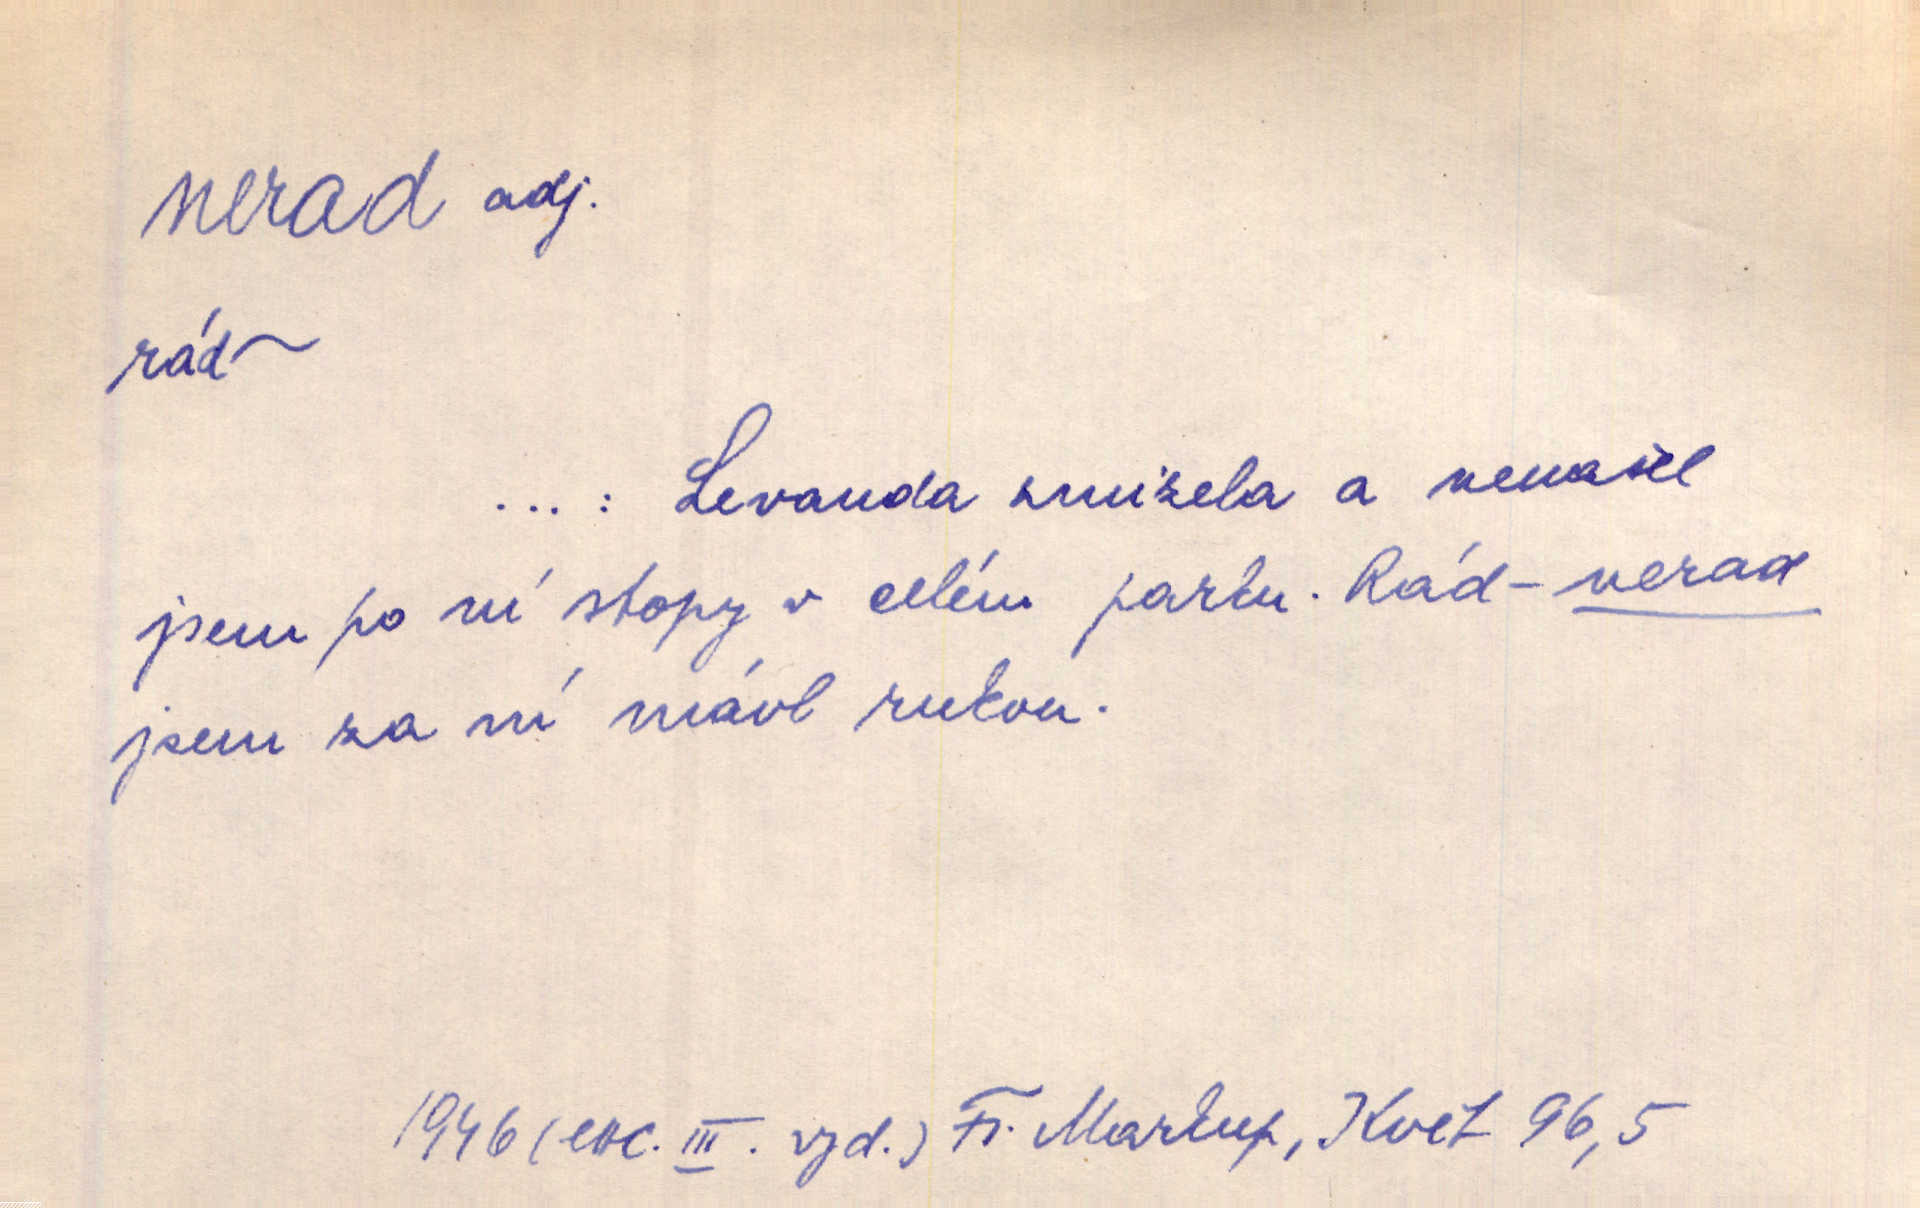 nerad adj.
rád~
...: Levanda zmizela a nenašel
jsem po ní stopy v celém parku. Rád-nerad
jsem za ní mávl rukou.
1946 (exc. III. vyd.) Fr. Květ 96,5